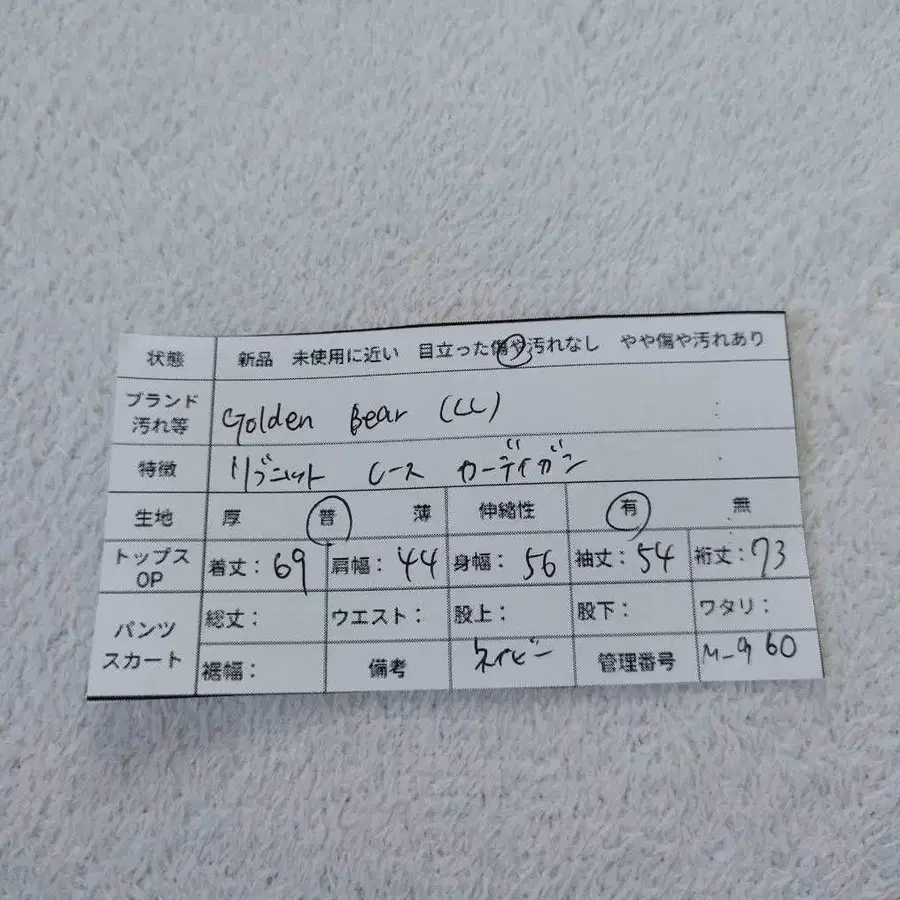 状態 新品 未使用に近い 目立った傷や汚れなし やや傷や汚れあり
ブランド 汚れ等 Golden Bear (LL)
特徴 リブニット レース カーディガン
生地 厚 普 薄 伸縮性 有 無
トップス OP 着丈：69 肩幅：44 身幅：56 袖丈：54 裄丈：73
パンツ スカート 総丈： ウエスト： 股上： 股下： ワタリ：
裾幅： 備考 ネイビー 管理番号 M-9 60